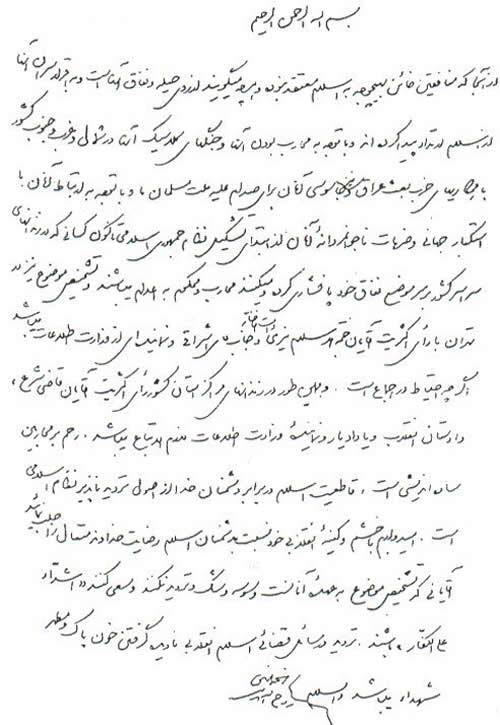 بسم الله الرحمن الرحیم
از آنجا که منافقین خائن بهیچوجه به اسلام معتقد نبوده و هر چه میگویند از روی حیله و نفاق آنهاست و به اقرار سران آنها
از اسلام ارتداد پیدا کرده‌اند و با توجه به محارب بودن آنها و جنگهای کلاسیک آنها در شمال و غرب و جنوب کشور
با همکاریهای حزب بعث عراق و نیز جاسوسی آنان برای صدام علیه ملت مسلمان ما و با توجه به ارتباط آنان با
استکبار جهانی و ضربات ناجوانمردانهٔ آنان از ابتدای تشکیل نظام جمهوری اسلامی تا کنون کسانی که در زندانهای
سراسر کشور بر سر موضع نفاق خود پافشاری کرده و میکنند محارب و محکوم به اعدام میباشند و تشخیص موضوع نیز در
تهران با رأی اکثریت آقایان حجة الاسلام نیری دامت افاضاته و جناب آقای اشراقی و نماینده‌ای از وزارت اطلاعات میباشد
اگر چه احتیاط در اجماع است . و همین طور در زندانهای مراکز استان کشور رأی اکثریت آقایان قاضی شرع،
دادستان انقلاب و یا دادیار و نمایندهٔ وزارت اطلاعات لازم الاتباع میباشد . رحم بر محاربین
ساده اندیشی است، قاطعیت اسلام در برابر دشمنان خدا از اصول تردید ناپذیر نظام اسلامی
است . امیدوارم با خشم و کینهٔ انقلابی خود نسبت به دشمنان اسلام رضایت خداوند متعال را جلب نمائید
آقایانی که تشخیص موضوع به عهدهٔ آنان است وسوسه و شک و تردید نکنند و سعی کنند « اشداء
علی الکفار » باشند . تردید در مسائل قضائی اسلام انقلابی نادیده گرفتن خون پاک و مطهر
شهداء میباشد والسلام
روح الله الموسوی الخمینی